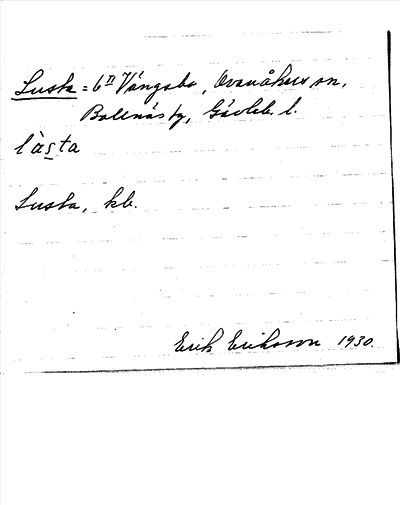 Lusta = 6 II Vängsbo, Ovanåkers sn,
Bollnäs tg, Gävleb. l.
làsta
Lusta, kb.
Erik Eriksson 1930.